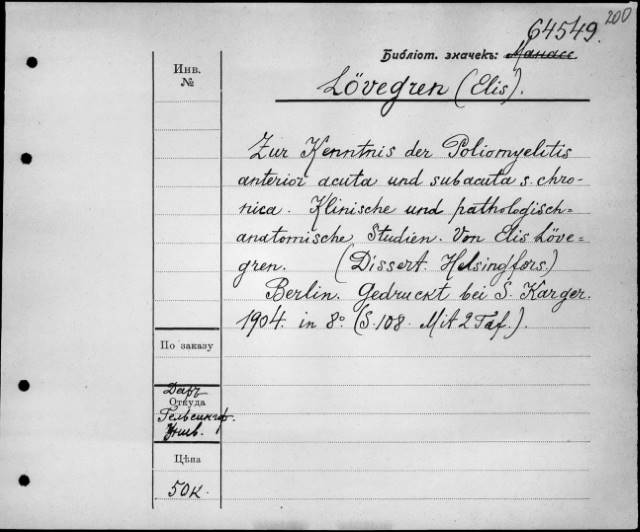 200
64549.
Библіот. значекъ: Манасс
Инв.
№
Lövegren (Elis).
Zur Kenntnis der Poliomyelitis
anterior acuta und subacuta s. chro-
nica. Klinische und pathologisch=
anatomische Studien. Von Elis Löve=
gren. (Dissert. Helsingfors.)
Berlin. Gedruckt bei S. Karger.
1904. in 8° (S. 108. Mit 2 Taf.).
По заказу
Даръ
Откуда
Гельсингф.
Унив.
Цѣна
50к.